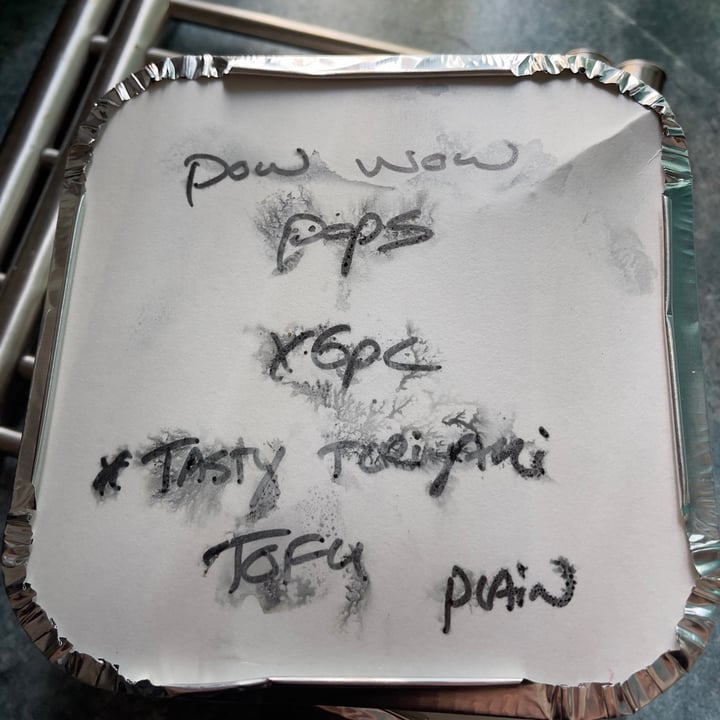 Pow wow
pips
x6pc
* TASTY TERiyAKi
TOFU
PLAiN